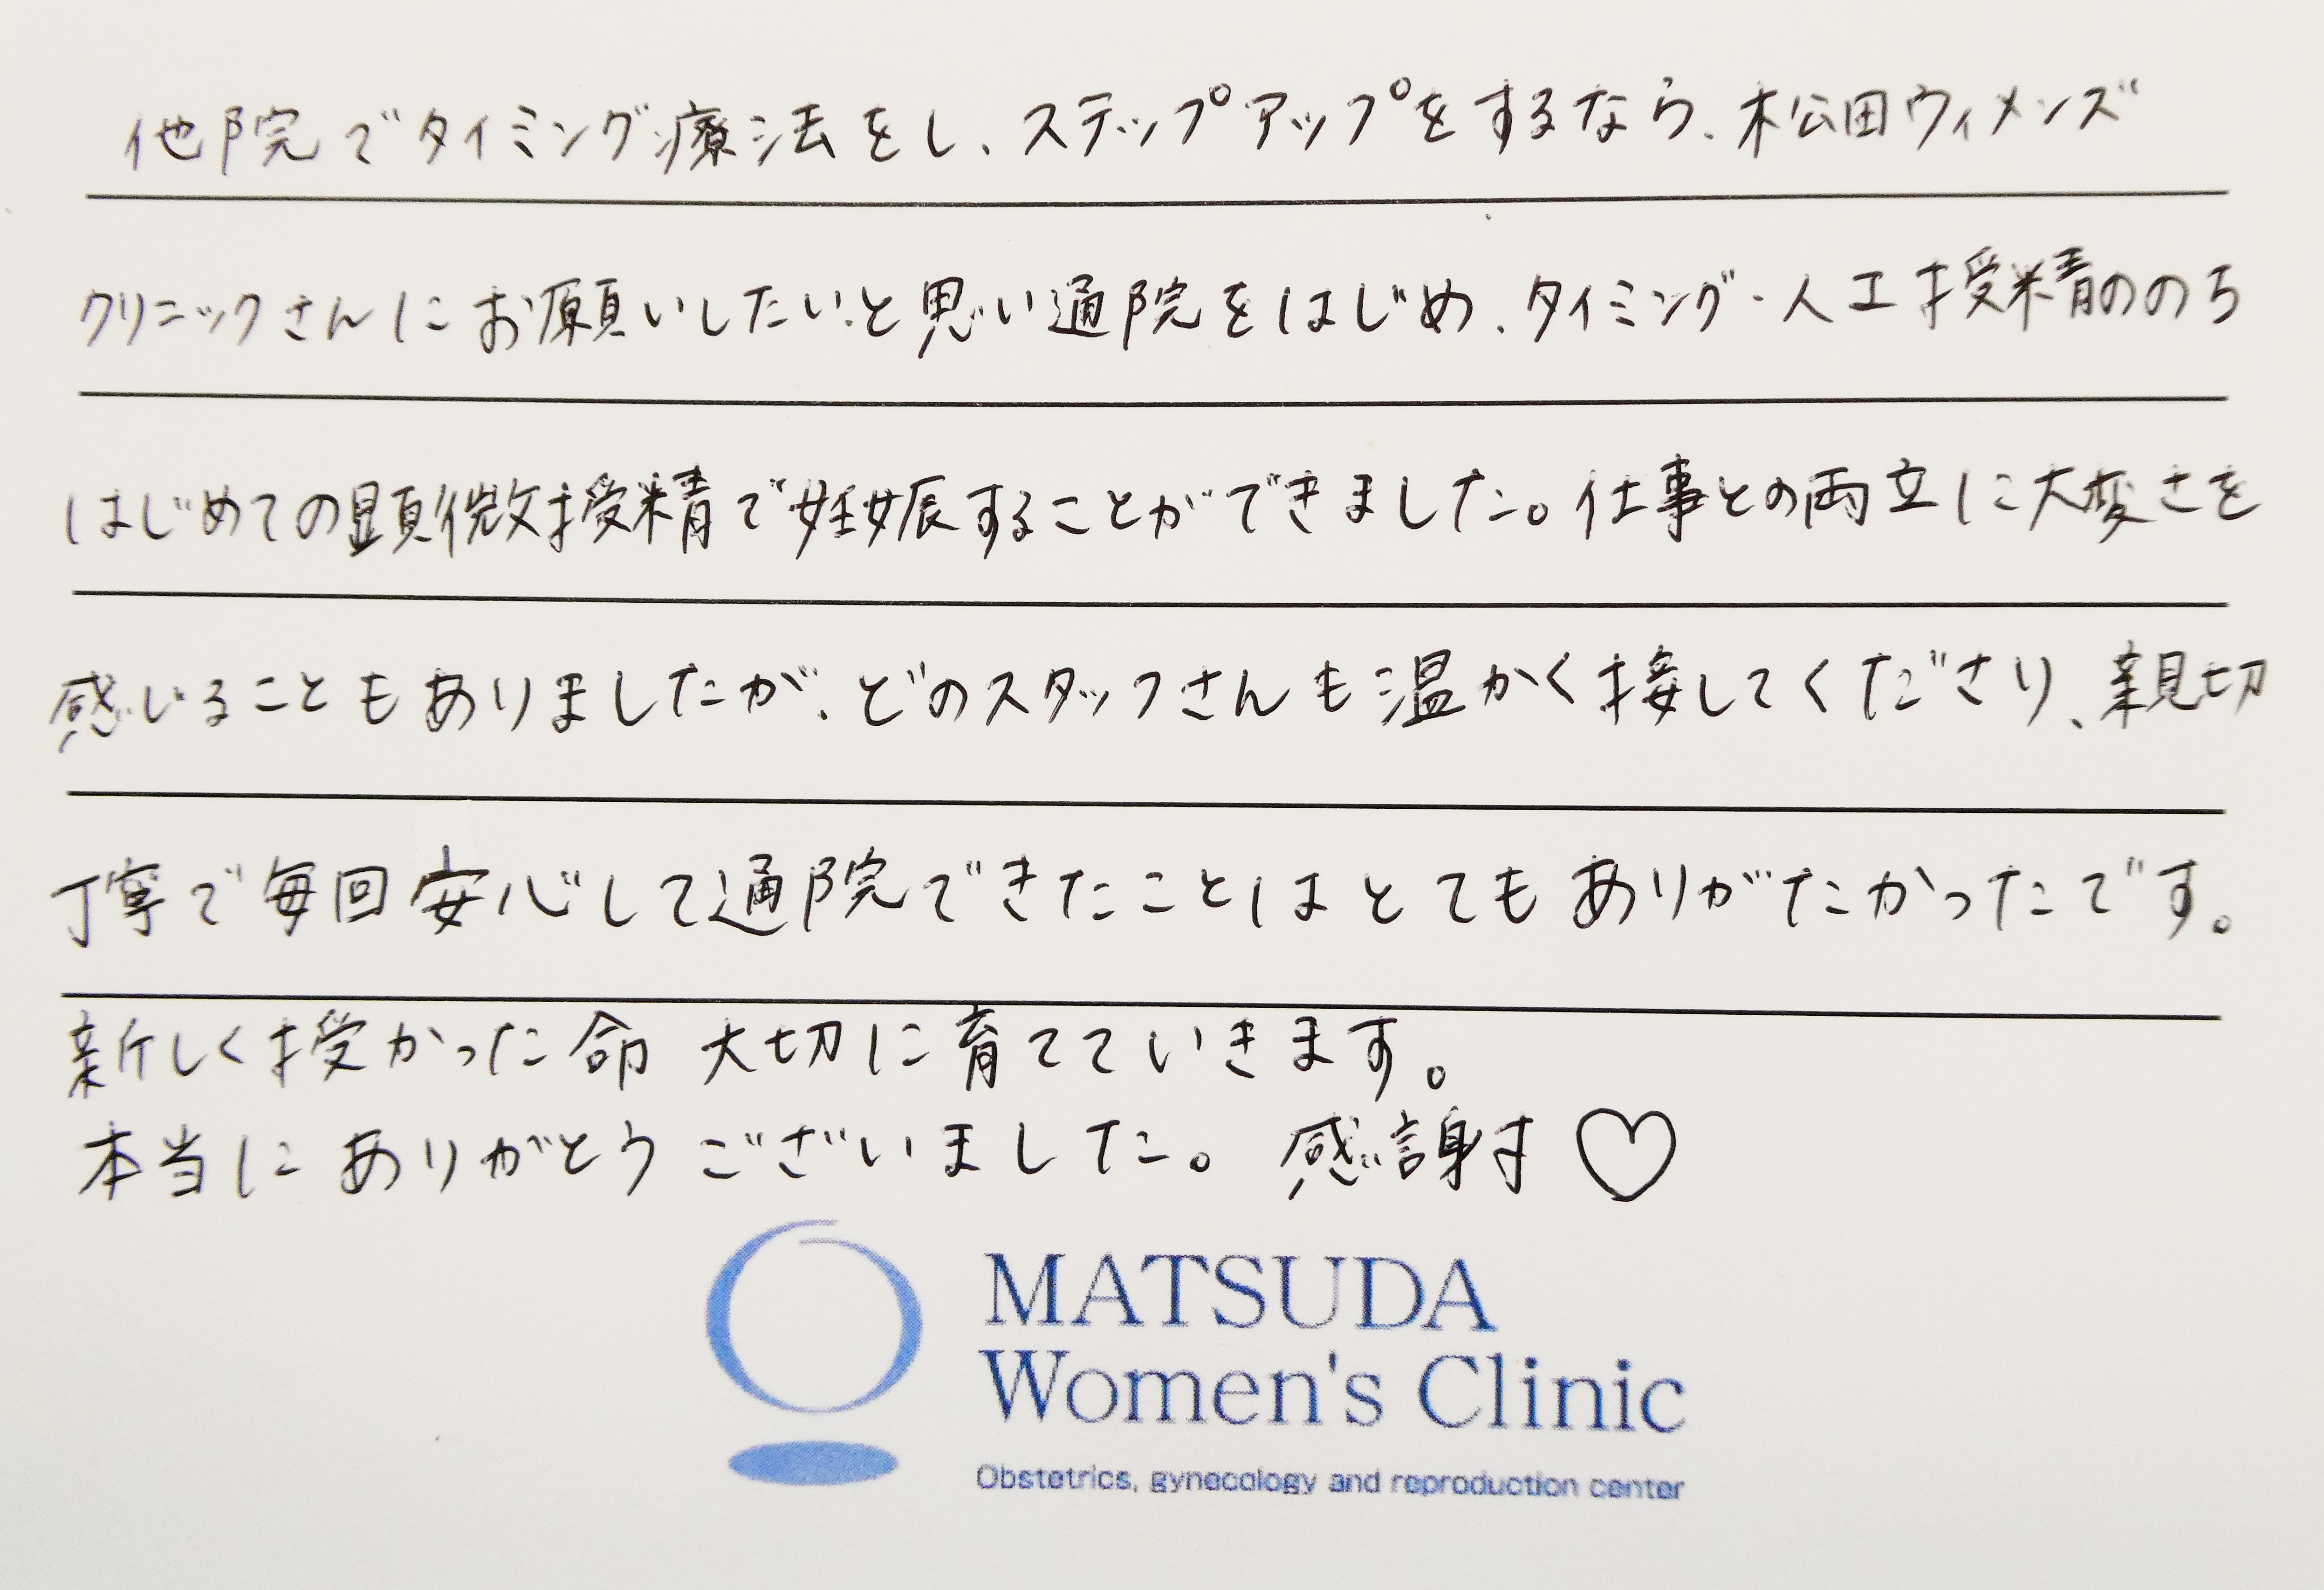 他院でタイミング療法をし、ステップアップをするなら、松田ウィメンズ
クリニックさんにお願いしたいと思い通院をはじめ、タイミング・人工授精ののち
はじめての顕微授精で妊娠することができました。仕事との両立に大変さを
感じることもありましたが、どのスタッフさんも温かく接してくださり、親切
丁寧で毎回安心して通院できたことはとてもありがたかったです。
新しく授かった命 大切に育てていきます。
本当にありがとうございました。 感謝♡
MATSUDA
Women's Clinic
Obstetrics, gynecology and reproduction center